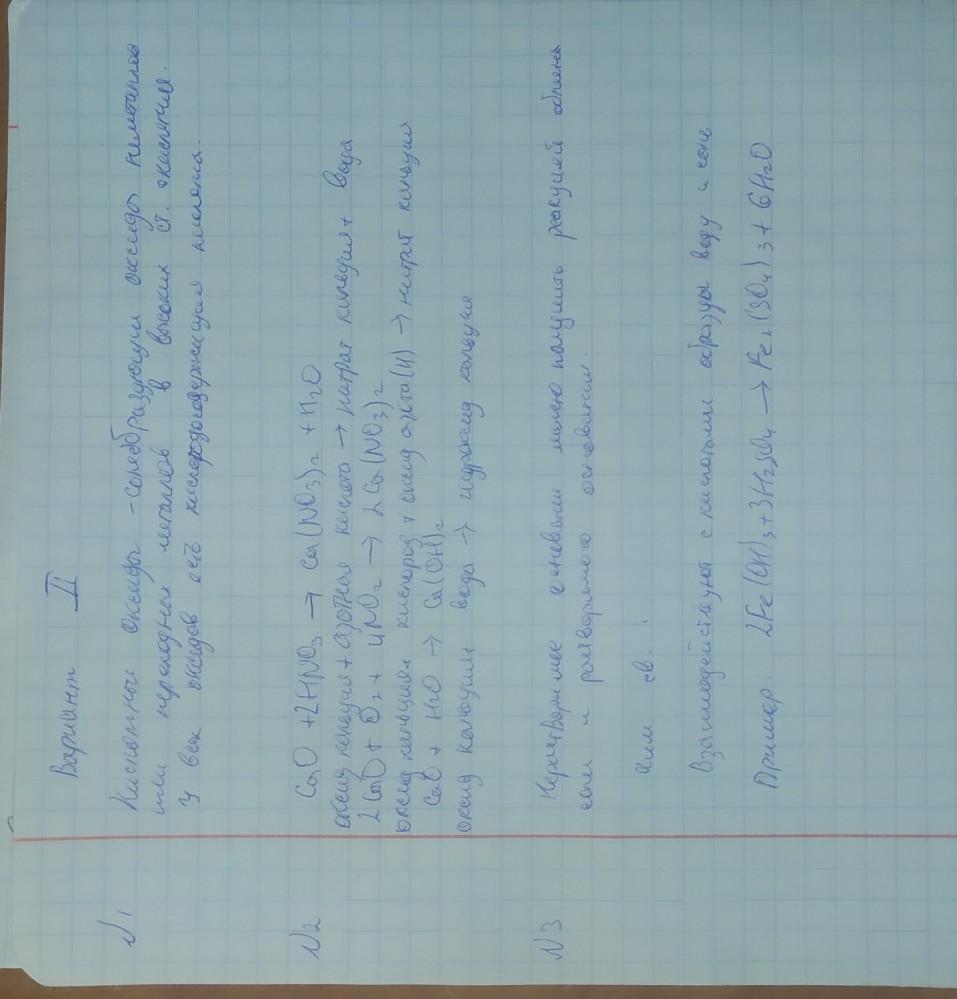 Вариант II
N1 Кислотные оксиды - солеобразующии оксиды неметаллов
или переходных металлов в высоких ст. окисления.
У всех оксидов есть кислородосодержащая кислота.
N2 CaO + 2HNO3 → Ca(NO3)2 + H2O
оксид кальция + азотная кислота → нитрат кальция + вода
2CaO + O2 + 4NO2 → 2Ca(NO3)2
оксид кальция кислород + оксид азота(II) → нитрат кальция
CaO + H2O → Ca(OH)2
оксид кальция вода → гидроксид кальция
N3 Нерастворимое основание можно получить реакцией обмена
соли и растворимого основания.
Хим св. :
Взаимодействуют с кислотами образуя воду и соль.
Пример: 2Fe(OH)3 + 3H2SO4 → Fe2(SO4)3 + 6H2O